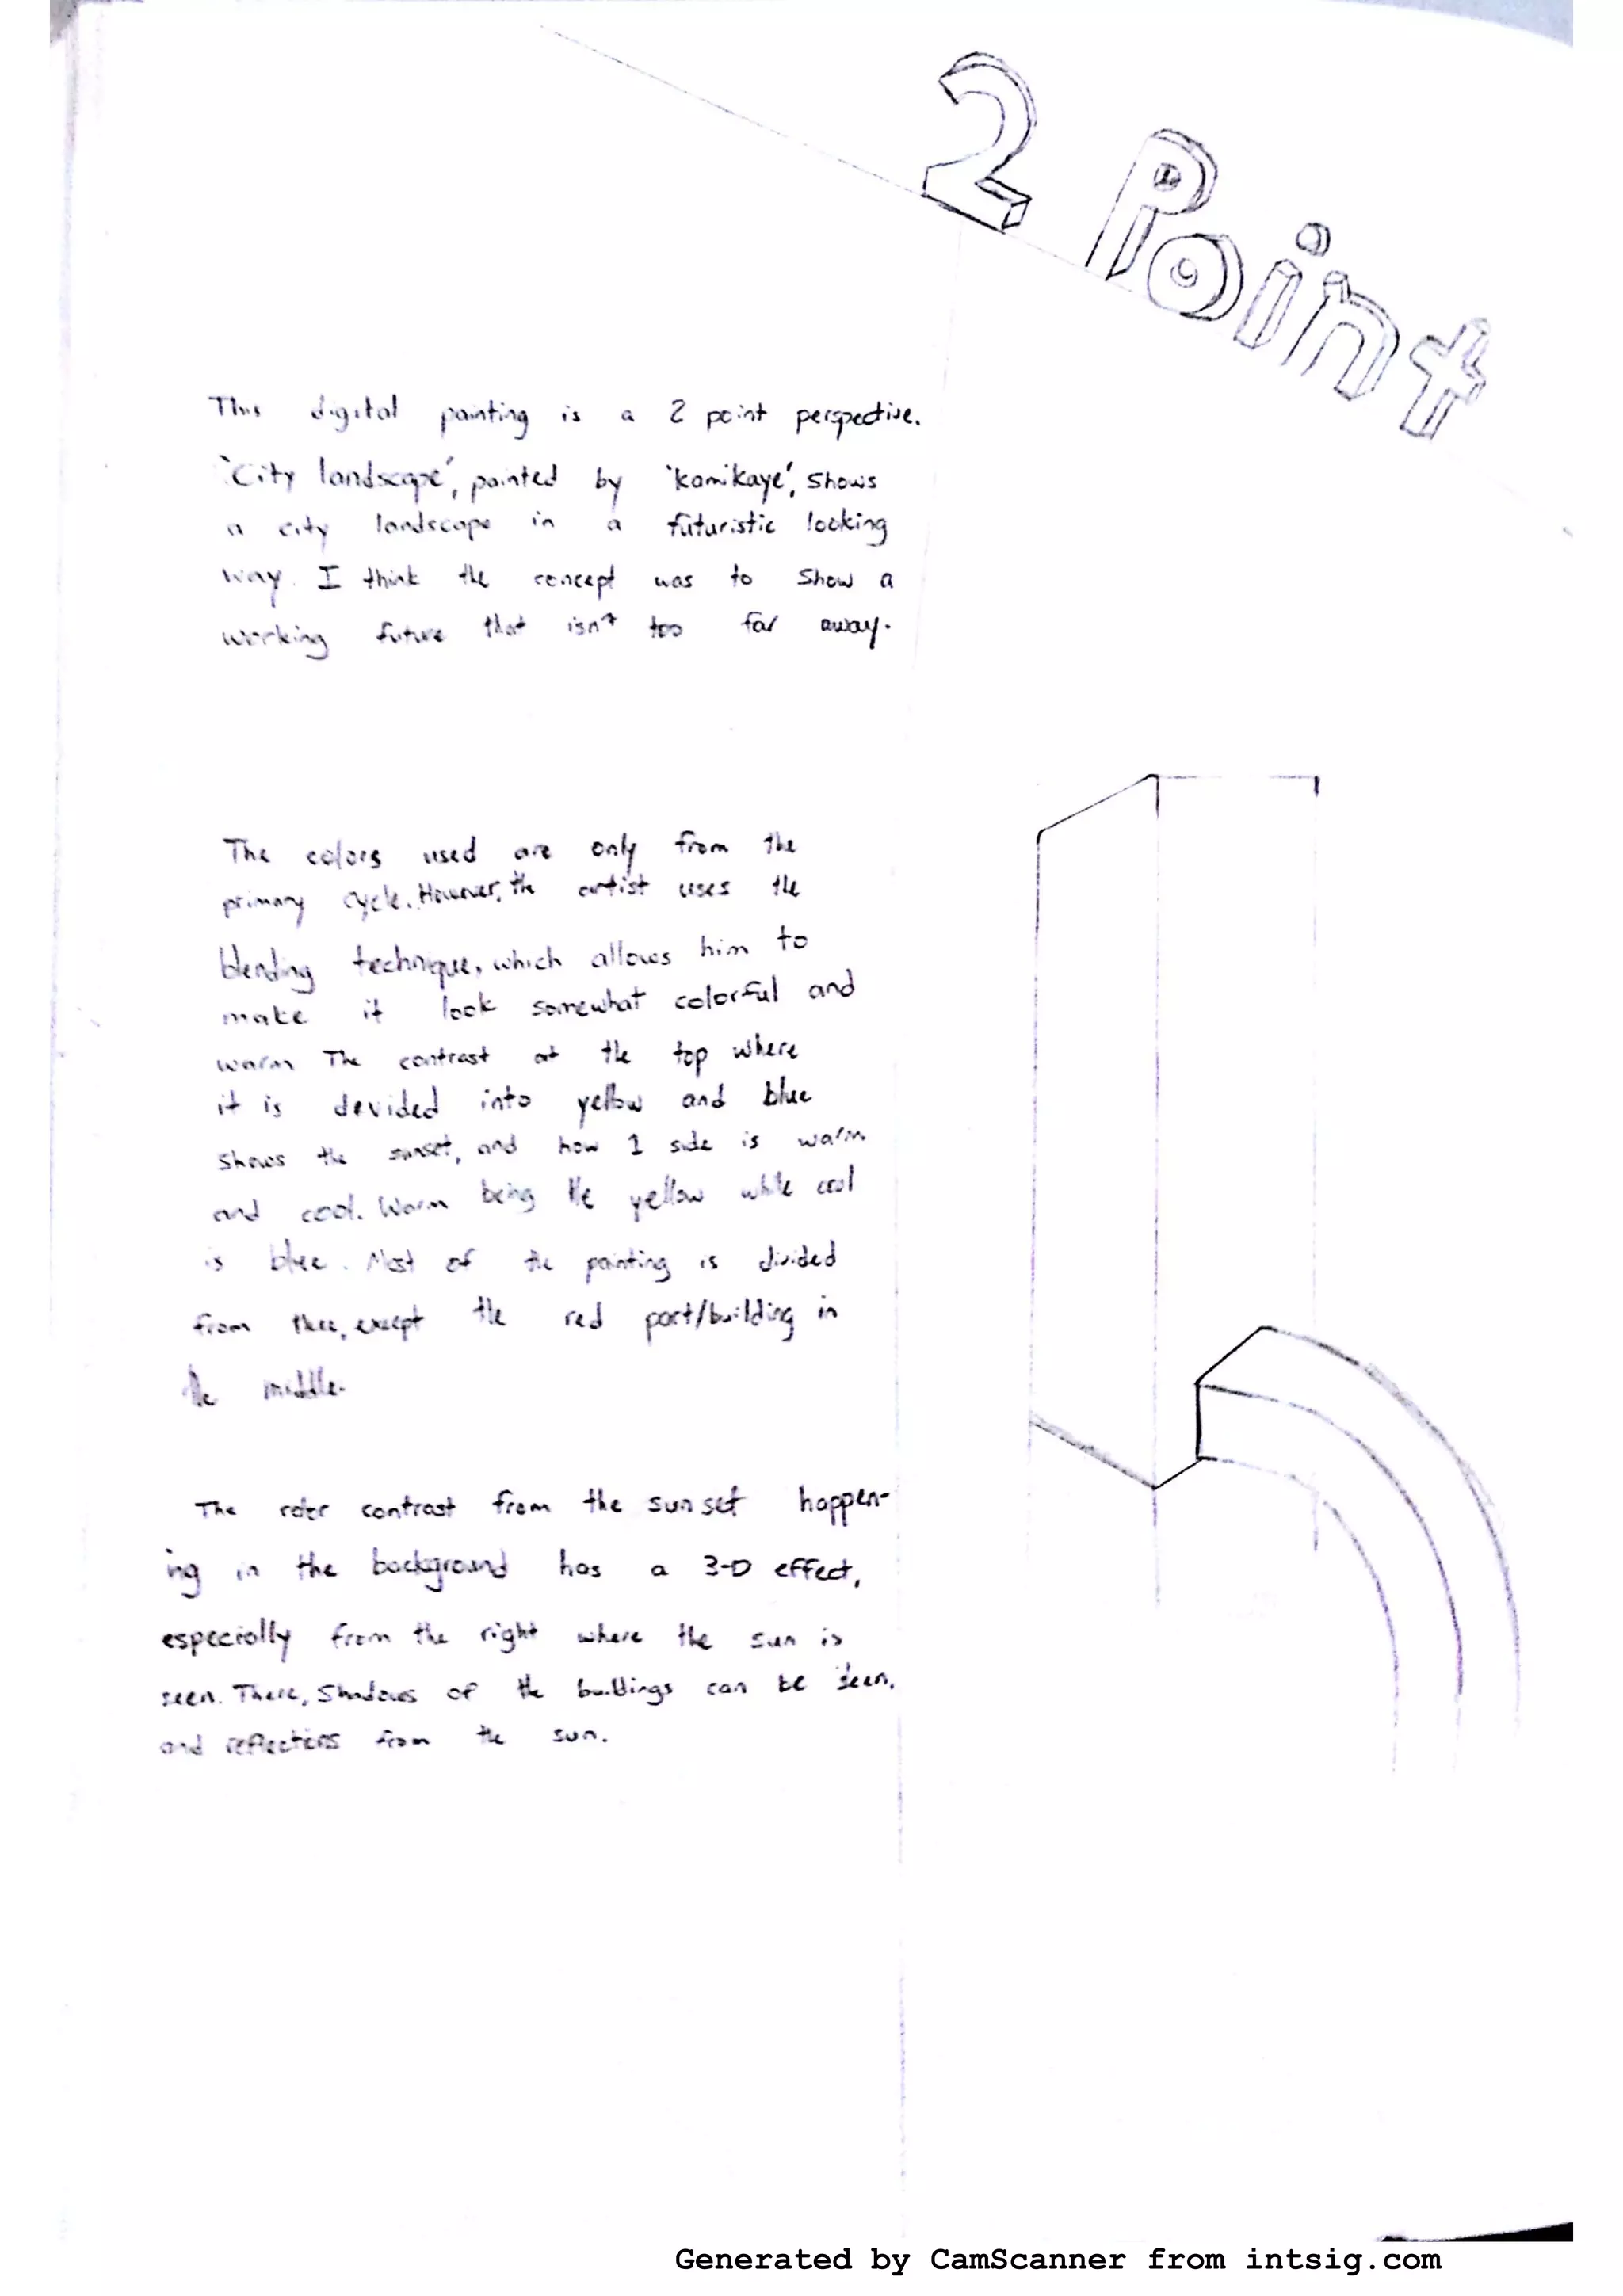 2 Point
This digital painting is a 2 point perspective.
'City landscape', painted by 'kamikaye', shows
a city landscape in a futuristic looking
way. I think the concept was to show a
working future that isn't too far away.
The colors used are only from the
primary cycle. However, the artist uses the
blending technique, which allows him to
make it look somewhat colorful and
warm The contrast at the top where
it is devided into yellow and blue
shows the sunset, and how 1 side is warm
and cool. Warm being the yellow while cool
is blue. Most of the painting is divided
from there, except the red part/building in
the middle.
The contrast from the sunset happen-
ing in the background has a 3-D effect,
especially from the right where the sun is
seen. There, shadows of the buildings can be seen,
and reflections from the sun.
Generated by CamScanner from intsig.com